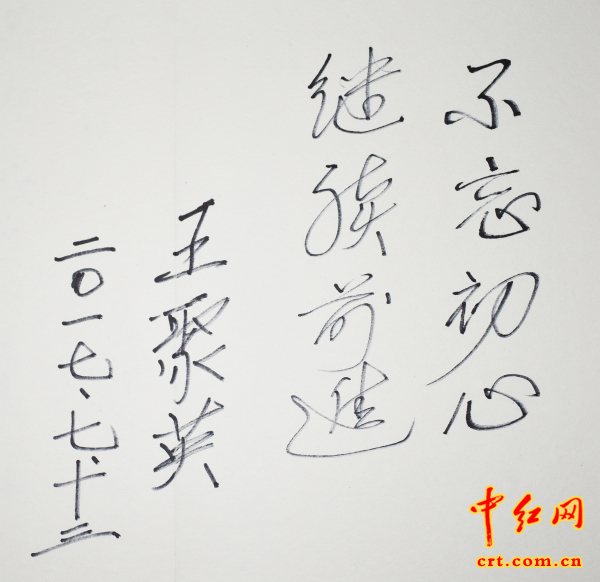 不忘初心
继续前進
王聚英
二〇一七、七、十三
中红网
crt.com.cn